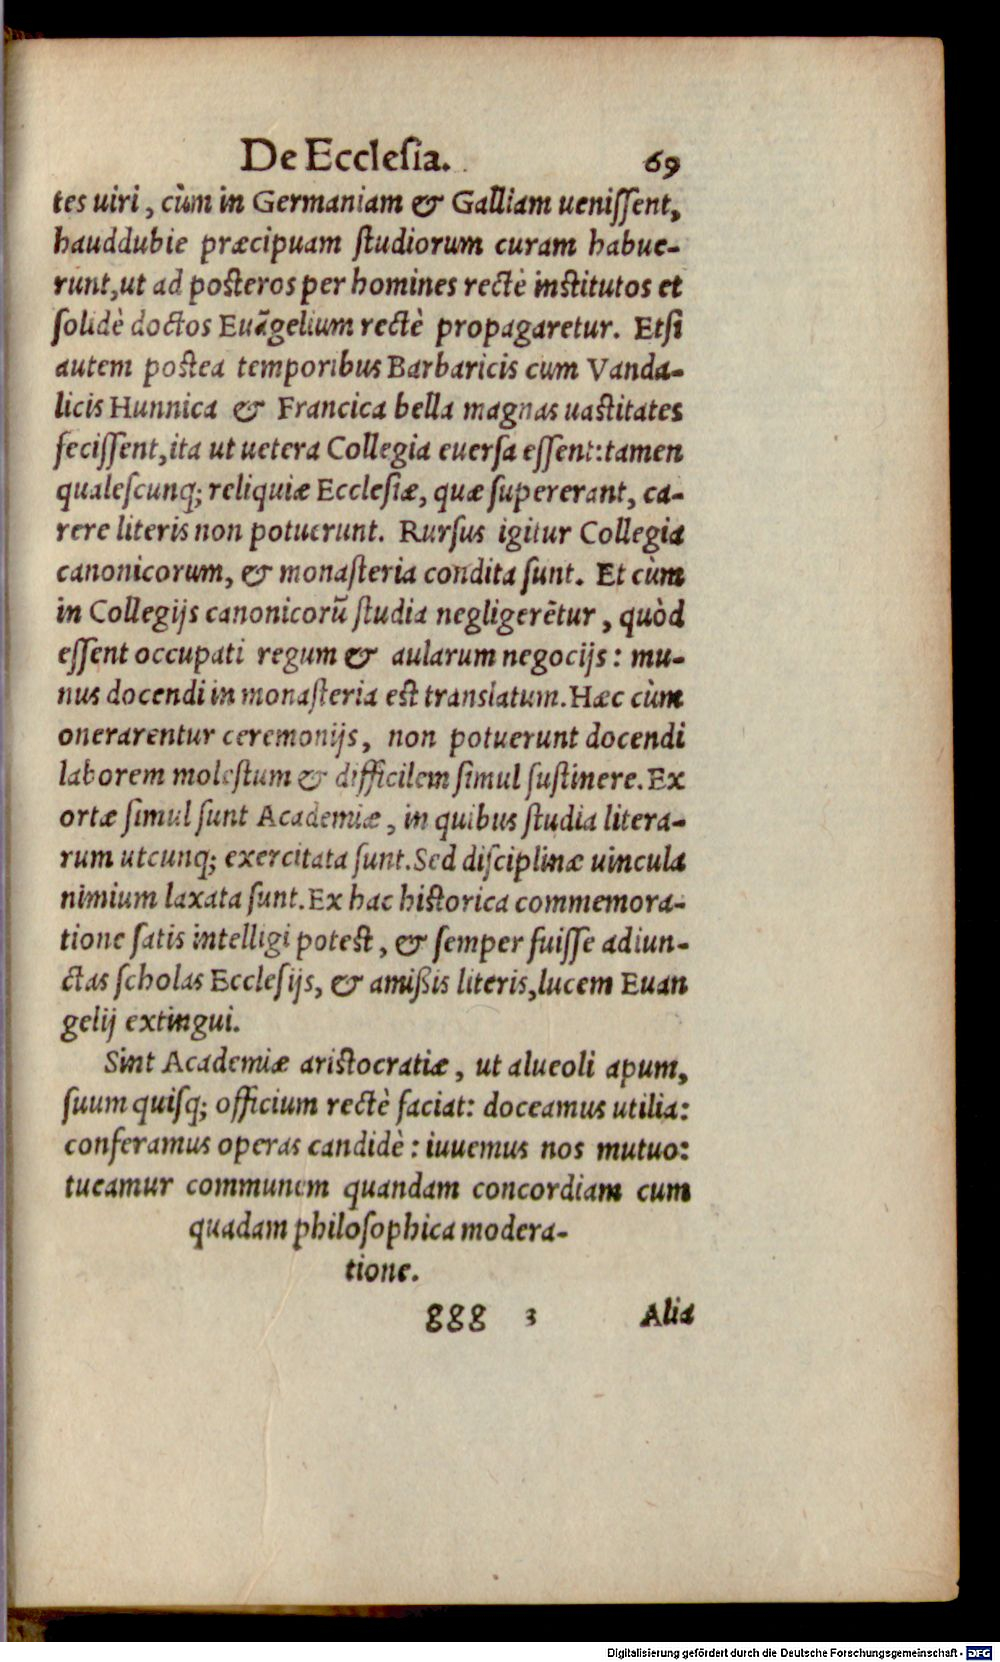 De Ecclesia. 69
tes uiri, cùm in Germaniam & Galliam uenissent,
hauddubie præcipuam studiorum curam habue-
runt, ut ad posteros per homines rectè institutos et
solidè doctos Euãgelium rectè propagaretur. Etsi
autem postea temporibus Barbaricis cum Vanda-
licis Hunnica & Francica bella magnas uastitates
fecissent, ita ut uetera Collegia euersa essent: tamen
qualescunq; reliquiæ Ecclesiæ, quæ supererant, ca-
rere literis non potuerunt. Rursus igitur Collegia
canonicorum, & monasteria condita sunt. Et cùm
in Collegijs canonicorũ studia negligerẽtur, quòd
essent occupati regum & aularum negocijs: mu-
nus docendi in monasteria est translatum. Hæc cùm
onerarentur ceremonijs, non potuerunt docendi
laborem molestum & difficilem simul sustinere. Ex
ortæ simul sunt Academiæ, in quibus studia litera-
rum utcunq; exercitata sunt. Sed disciplinæ uincula
nimium laxata sunt. Ex hac historica commemora-
tione satis intelligi potest, & semper fuisse adiun-
ctas scholas Ecclesijs, & amißis literis, lucem Euan
gelij extingui.
Sint Academiæ aristocratiæ, ut alueoli apum,
suum quisq; officium rectè faciat: doceamus utilia:
conferamus operas candidè: iuuemus nos mutuo:
tueamur communem quandam concordiam cum
quadam philosophica modera-
tione.
ggg 3 Alia
Digitalisierung gefördert durch die Deutsche Forschungsgemeinschaft - DFG